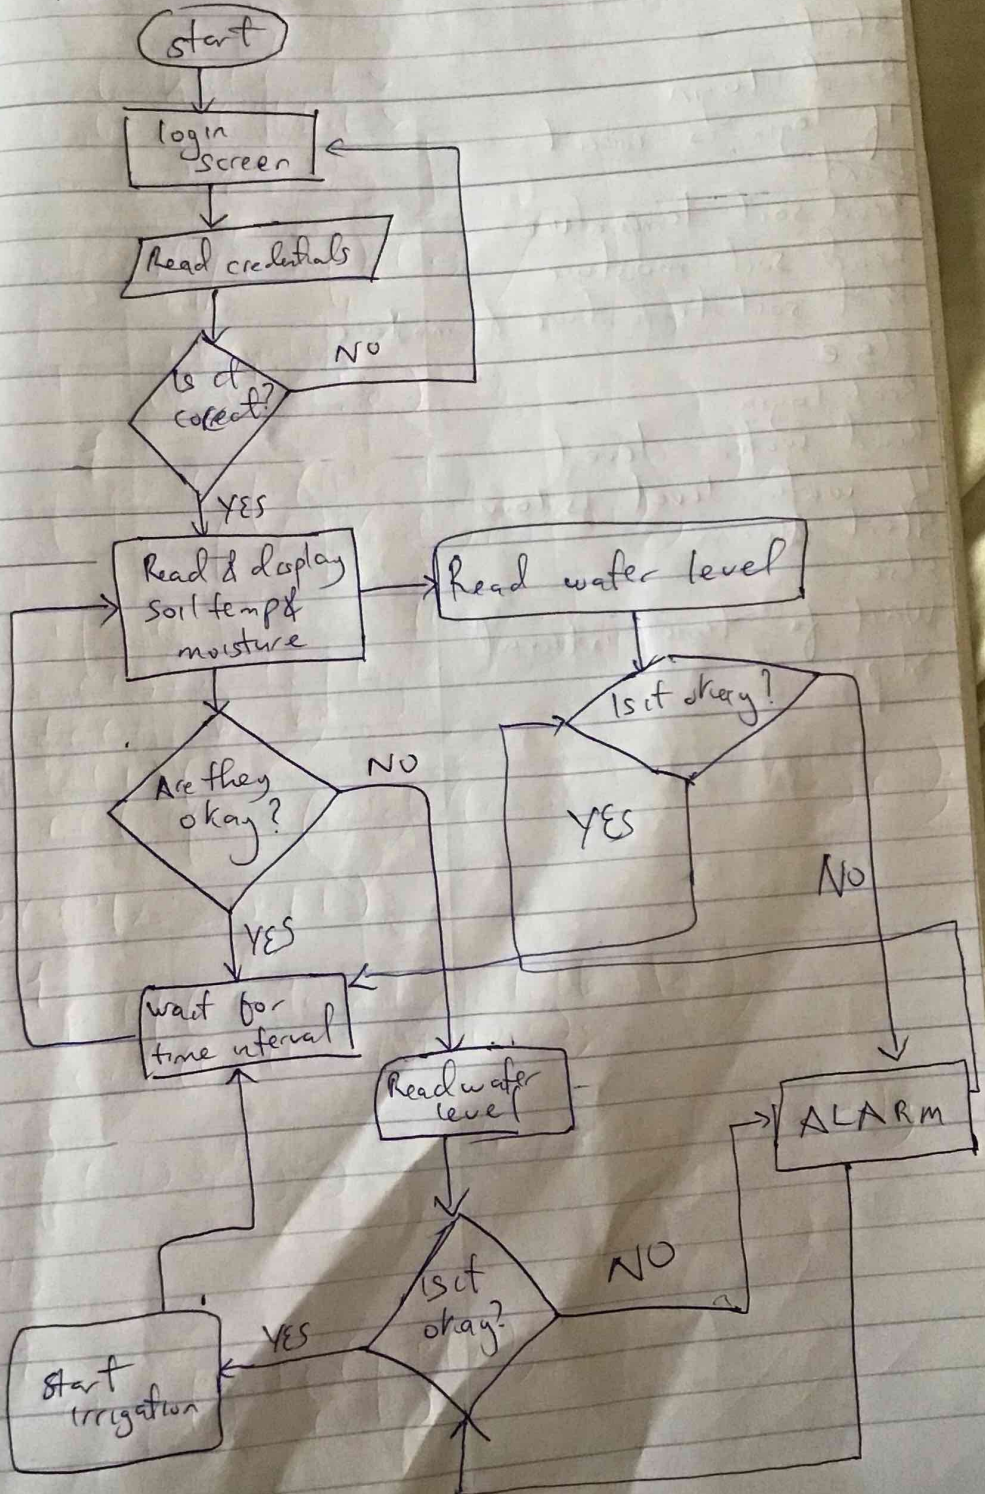 start
login
screen
Read credentials
NO
Is it
corect?
YES
Read & display
soil temp &
moisture
Read water level
Is it okay?
Are they
okay?
NO
YES
NO
YES
wait for
time interval
Read water
level
ALARM
Is it
okay?
NO
YES
start
irrigation